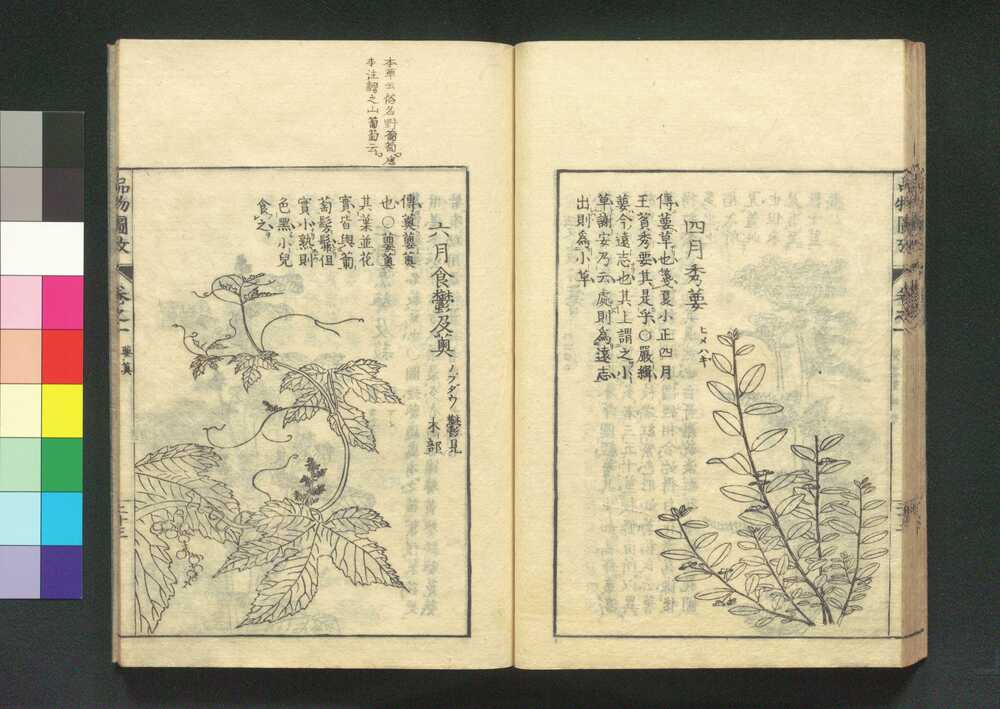 四月秀葽 ヒメハギ
傳葽草也箋夏小正四月
王萯秀葽其是乎〇嚴緝
葽今遠志也其上謂之小
草謝安乃云處則為遠志
出則為小草
品物圖攷
卷之一
本草云俗名野葡萄唐
本注謂之山葡萄云
六月食鬱及薁 ノブダウ 鬱見
木部
傳薁蘡薁
也〇蘡薁
其葉並花
實皆與葡
萄髣髴但
實小熟則
色黑小兒
食之
品物圖攷
卷之一
蘡薁
二十三